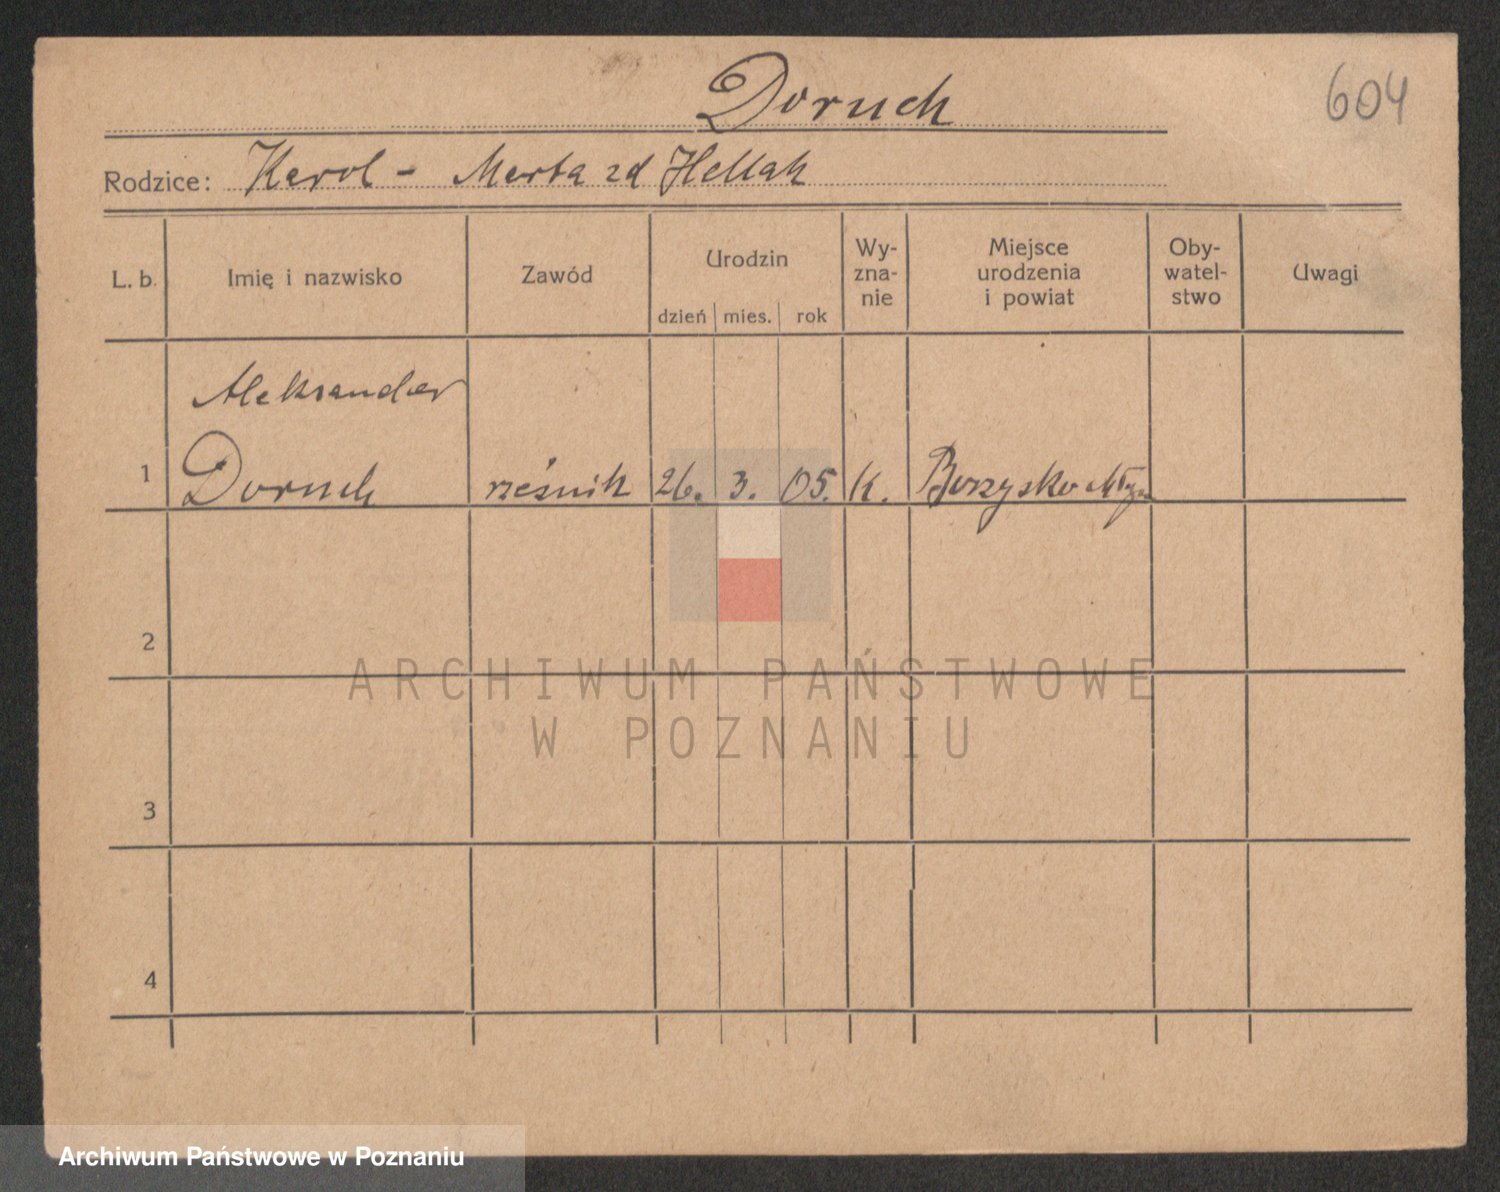 Doruch
604
Rodzice: Karol - Marta zd Hellak
L. b. Imię i nazwisko Zawód Urodzin dzień mies. rok Wy-zna-nie Miejsce urodzenia i powiat Oby-watel-stwo Uwagi
Aleksander
1 Doruch rzeźnik 26. 3. 05. K. Borzysko Młyn
2
3
4
ARCHIWUM PAŃSTWOWE
W POZNANIU
Archiwum Państwowe w Poznaniu